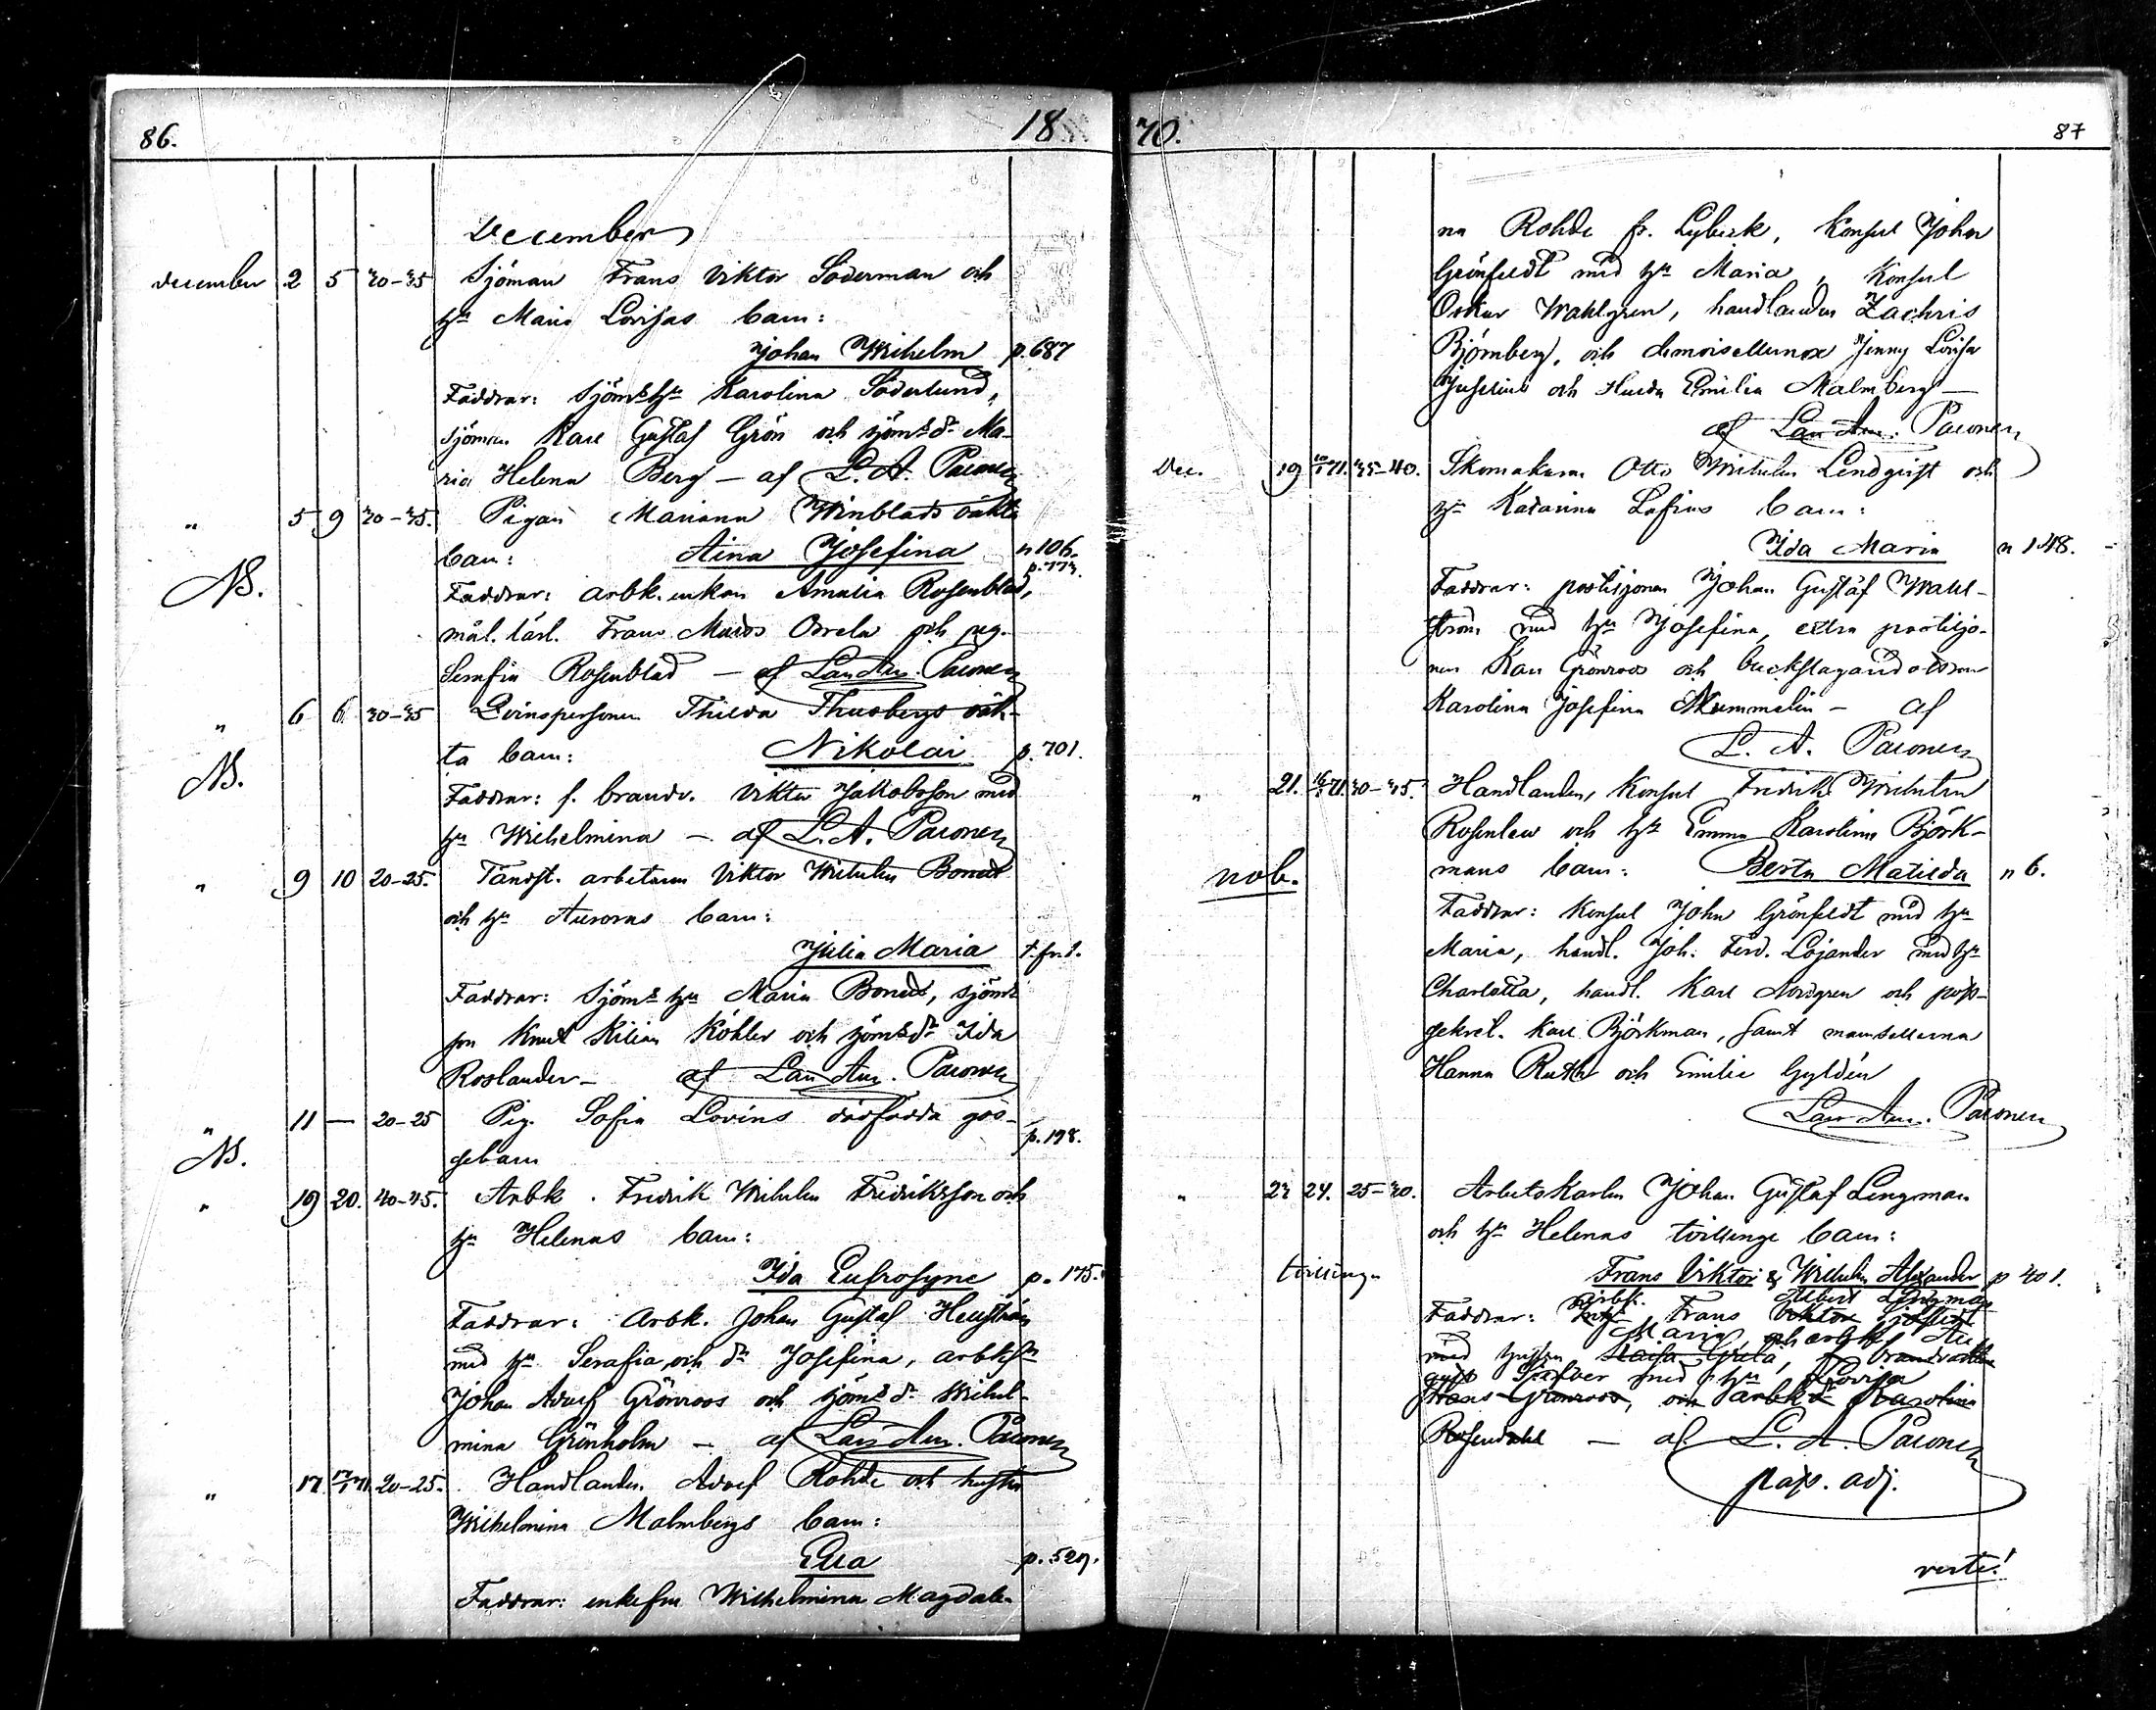 86.
18
December
December 2 5 30-35 Sjöman Frans Viktor Söderman och
hu Maria Lovisas barn:
Johan Wilhelm p. 687
Faddrar: sjöms hu Karolina Söderlund,
sjöman Karl Gustaf Grön och sjöms dr Ma-
ria Helena Berg — af L. A. Paconen
" 5 9 30-35. Pigan Mariana Winblads oäkta
barn: Aina Josefina n 106.
p. 773.
NB.
Faddrar: arbk. enkan Amalia Rosenblad,
mål. lärl. Frans Orrela och pig.
Serafia Rosenblad — af Lars Au. Paconen
" 6 6 30-35 Qvinspersonen Thilda Thusbergs oäk-
ta barn: Nikolai p. 701.
NB.
Faddrar: f. brandv. Viktor Jakobsson med
hu Wilhelmina — af L. A. Paconen
" 9 10 20-25. Tändst. arbetaren Viktor Wilhelm
och hu Auroras barn:
Julia Maria
Faddrar: Sjöms hu Maria sjöms
son Knut Kilian Köhler och sjöms dr Ida
Roslander — af Lars Au. Paconen
" 11 — 20-25 Pig. Sofia Lovins dödfödda gos-
p. 198.
NB.
sebarn
" 19 20. 40-45. Arbk. Fredrik Wilhelm Fredriksson och
hu Helenas barn:
Ida Eufrosyne p. 175.
Faddrar: Arbk. Johan Gustaf Hellström
med hu Serafia, och dr Josefina, arbks sn
Johan Adolf Grönroos och sjöms dr Wilhel-
mina Grönholm — af Lars Au. Paconen
" 17 12/1 71 20-25. Handlanden Adolf Rohde och hustru
Wilhelmina Malmbergs barn:
Ella p. 529.
Faddrar: enkefru Wilhelmina Magdale-
70.
87
na Rohde fr. Lybeck, Konsul John
Grönfeldt med hu Maria, Konsul
Oskar Wahlgren, handlanden Zachris
Björnberg, och demoisellerna Jenny Lovisa
Juselius och Hulda Emilia Malmberg —
af Lars Au. Paconen
Dec. 19 10/1 71. 35-40. Skomakaren Otto Wilhelm Lendqvist och
hu Katarina Lofins barn:
Ida Maria n 148.
Faddrar: postiljonen Johan Gustaf Wahl-
ström med hu Josefina, extra postiljo-
nen Karl Grönroos och buckslagaredottren
Karolina Josefina Nummelin — af
L. A. Paconen
" 21. 16/1 71. 30-35. Handlanden, Konsul Fredrik Wilhelm
Rosenlew och hu Emma Karolina Björk-
nob.
mans barn: Berta Matilda n 6.
Faddrar: Konsul John Grönfeldt med hu
Maria, handl. Joh. Ferd. Lojander med hu
Charlotta, handl. Karl Nordgren och post-
sekret. Karl Björkman, samt mamsellerna
Hanna Ruth och Emilie Gyldén
Lars Au. Paconen
" 23 24. 25-30. Arbetskarlen Johan Gustaf Lengman
och hu Helenas tvillinge barn:
tvillingar
Frans Viktor & Wilhelm Alexander p 401.
arbk. Albert Lengman
Faddrar: Frans Viktor Sjöstedt
Maria, och arbk. Au-
med hustru Kaisa Greta, f. brandvakten
gust Silfver med hu Lovisa
Frans Grönroos, och arbk dr Karolina
Rosendahl — af L. A. Paconen
past. adj.
verte!